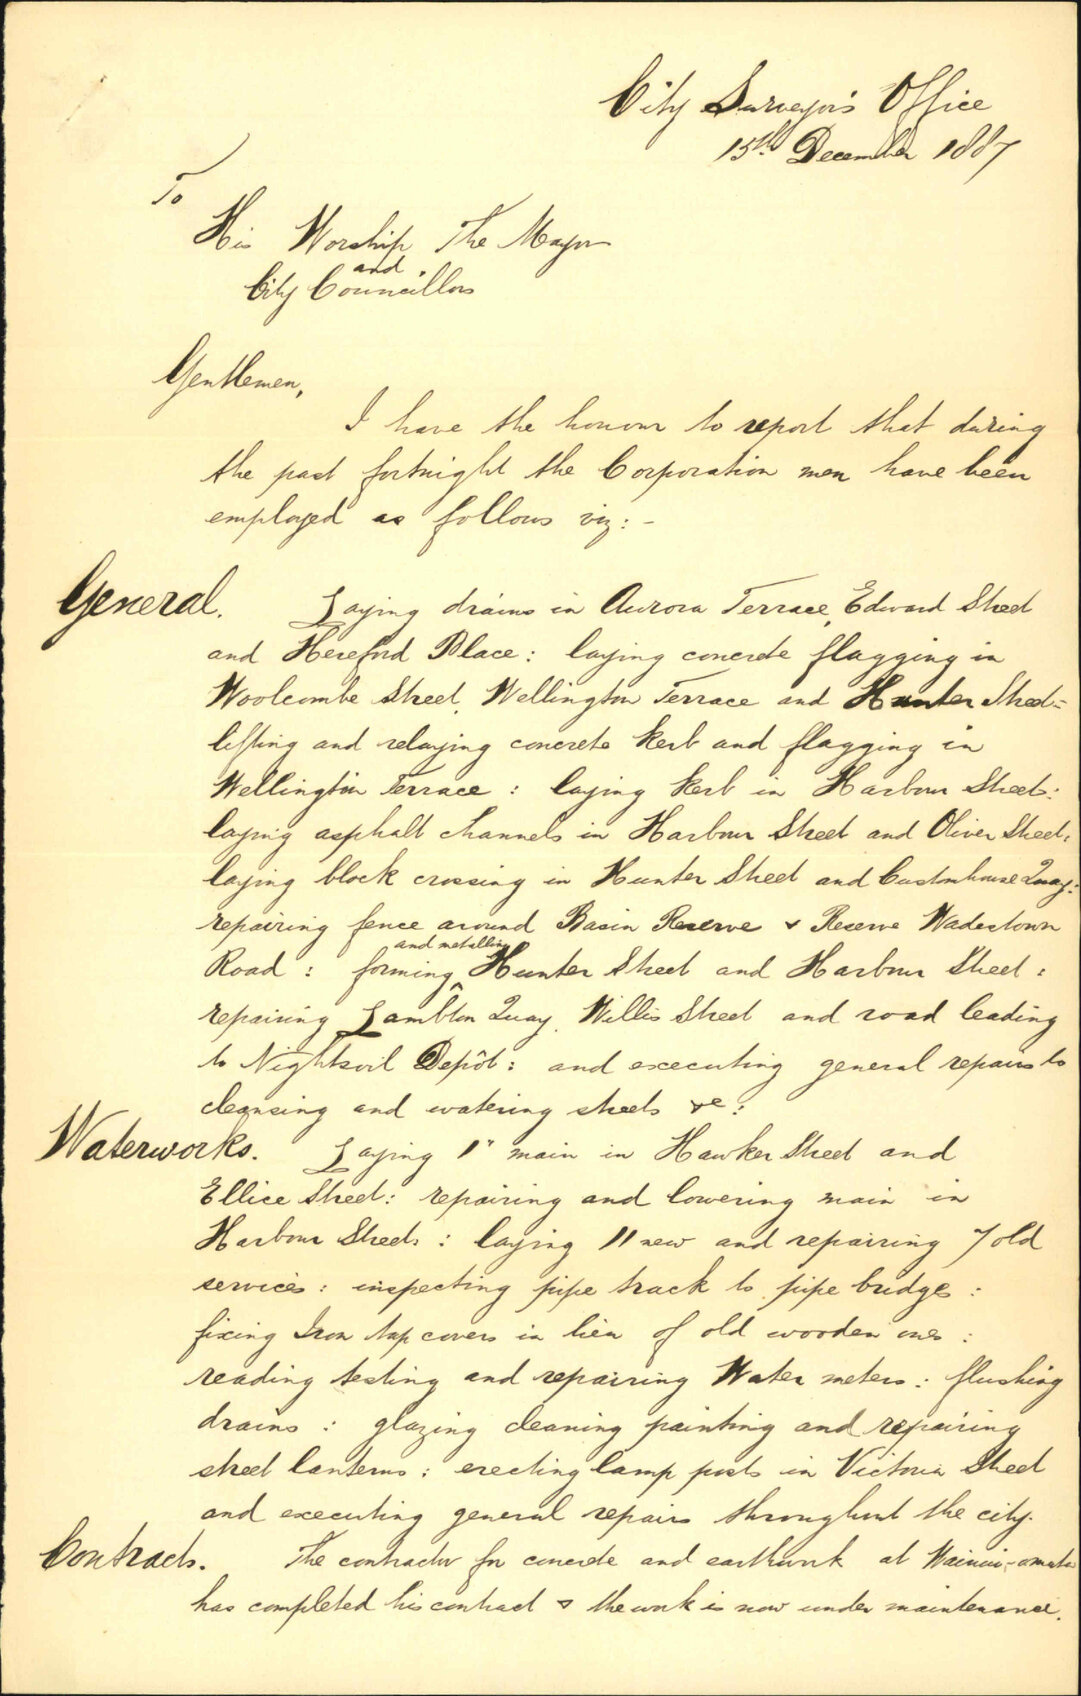 City Surveyor's Office
15th December 1887
To
His Worship The Mayor
and
City Councillors
Gentlemen,
I have the honour to report that during
the past fortnight the Corporation men have been
employed as follows viz: -
General. Laying drains in Aurora Terrace, Edward Street
and Hereford Place: laying concrete flagging in
Woolcombe Street, Wellington Terrace and Hunter Street:
lifting and relaying concrete kerb and flagging in
Wellington Terrace: laying kerb in Harbour Street:
laying asphalt channels in Harbour Street and Oliver Street:
laying block crossing in Hunter Street and Customhouse Quay:
repairing fence around Basin Reserve & Reserve Wadestown
Road: forming and metalling Hunter Street and Harbour Street:
repairing Lambton Quay, Willis Street and road leading
to Nightsoil Depôt: and executing general repairs to
cleansing and watering streets &c:
Waterworks. Laying 1" main in Hawker Street and
Ellice Street: repairing and lowering main in
Harbour Street: laying 11 new and repairing 7 old
services: inspecting pipe track to pipe bridge:
fixing Iron tap covers in lieu of old wooden ones:
reading testing and repairing Water meters: flushing
drains: glazing cleaning painting and repairing
street lanterns: erecting lamp posts in Victoria Street
and executing general repairs throughout the city.
Contracts. The contractor for concrete and earthwork at Wainui-omata
has completed his contract & the work is now under maintenance.